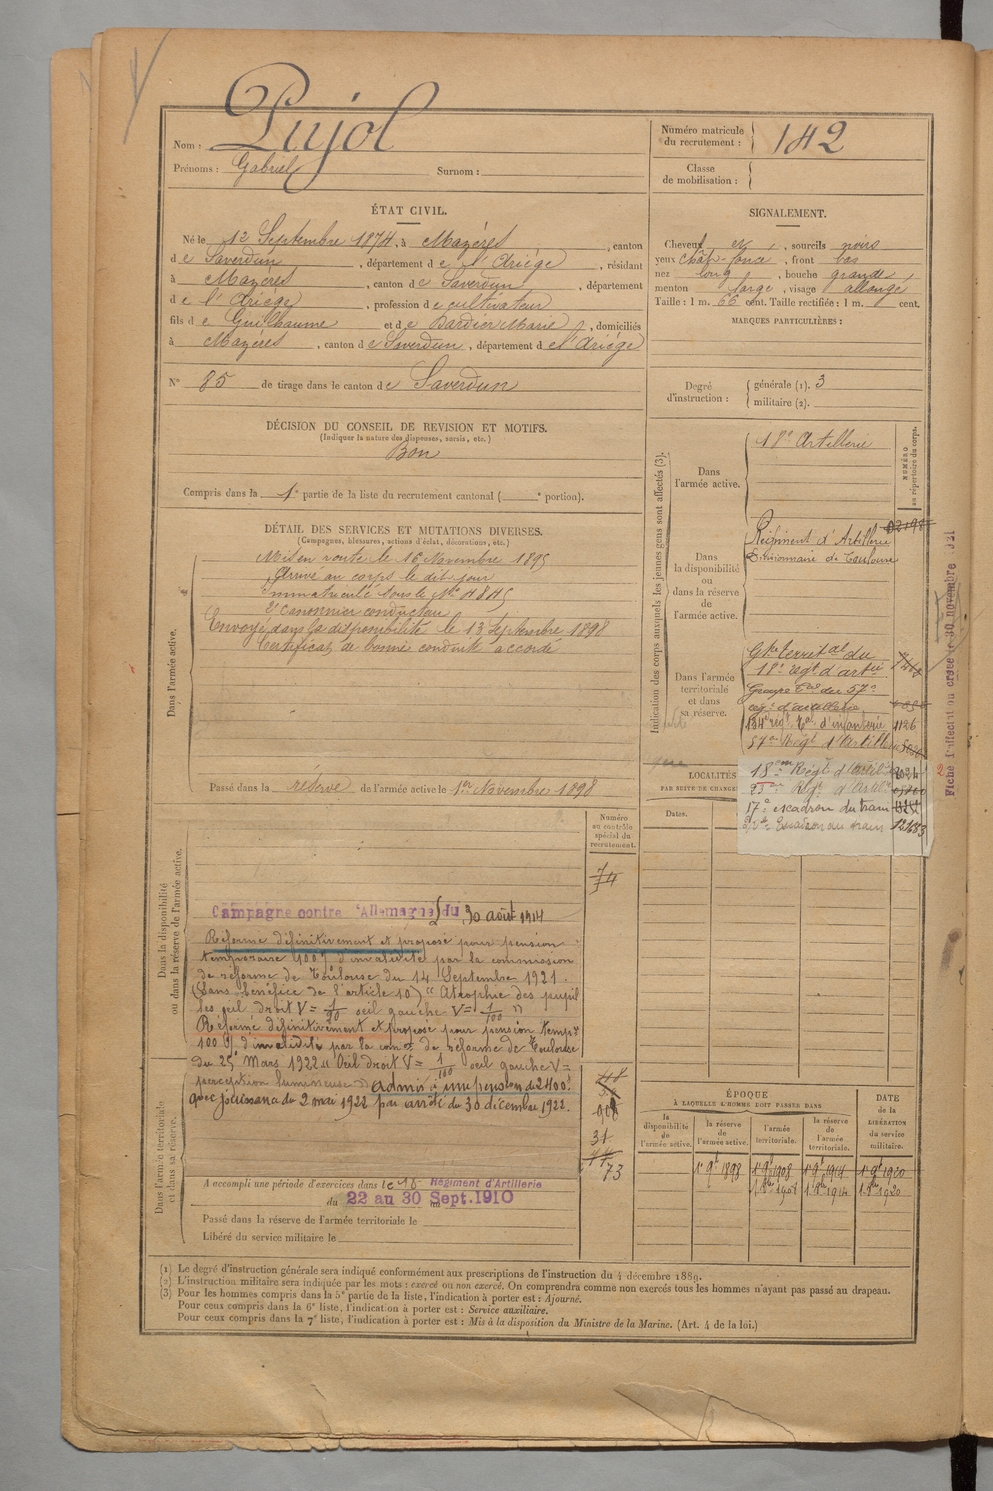 Nom : Pujol
Prénoms : Gabriel Surnom :
Numéro matricule du recrutement : 142
Classe de mobilisation :
ÉTAT CIVIL.
Né le 12 Septembre 1874, à Mazères, canton
de Saverdun, département de l'Ariège, résidant
à Mazères, canton de Saverdun, département
de l'Ariège, profession de cultivateur
fils de Guilhaume et de Bardier Marie, domiciliés
à Mazères, canton de Saverdun, département de l'Ariège
N° 85 de tirage dans le canton de Saverdun
SIGNALEMENT.
Cheveux et, sourcils noirs
yeux chât-foncé, front bas
nez long, bouche grande
menton large, visage allongé
Taille : 1 m. 66 cent. Taille rectifiée : 1 m. cent.
MARQUES PARTICULIÈRES :
Degré d'instruction : générale (1). 3
militaire (2).
DÉCISION DU CONSEIL DE REVISION ET MOTIFS.
(Indiquer la nature des dispenses, sursis, etc.)
Bon
Compris dans la 1e partie de la liste du recrutement cantonal ( e portion).
DÉTAIL DES SERVICES ET MUTATIONS DIVERSES.
(Campagnes, blessures, actions d'éclat, décorations, etc.)
Dans l'armée active.
Mis en route le 16 Novembre 1895
Arrivé au corps le dit jour
Immatriculé sous le No 4845
2e Canonnier conducteur
Envoyé dans la disponibilité le 13 Septembre 1898
Certificat de bonne conduite accordé
Passé dans la réserve de l'armée active le 1er Novembre 1898
Indication des corps auxquels les jeunes gens sont affectés (3).
NUMÉRO au répertoire du corps.
Dans l'armée active.
18e Artillerie
Dans la disponibilité ou dans la réserve de l'armée active.
Régiment d'Artillerie
Divisionnaire de Toulouse
Dans l'armée territoriale et dans sa réserve.
Gpe territal du
18e regt d'artie
Groupe Tal du 57e
reg. d'artillerie
134e regt Tal d'infanterie 1126
57e Regt d'Artill
18e Regt d'Artil
23e Regt d'Artil
17e escadron du train
Escadron du train
LOCALITÉS
PAR SUITE DE CHANGE
Dates.
Fiche d'affectation créée le 30 novembre 1921
Numéro au contrôle spécial du recrutement.
74
Dans la disponibilité ou dans la réserve de l'armée active.
Campagne contre l'Allemagne du 30 août 1914
Réformé définitivement et proposé pour pension
temporaire 100% d'invalidité par la commission
de réforme de Toulouse du 14 Septembre 1921.
(Sans bénéfice de l'article 10) "Atrophie des pupil
les oeil droit V = 1/20 oeil gauche V = 1/100"
Réformé définitivement et proposé pour pension temp.
100% d'invalidité par la comon de réforme de Toulouse
du 25 Mars 1922 "Oeil droit V = 1/100 oeil gauche V =
perception lumineuse" admis à une pension de 2400f
avec jouissance du 2 mai 1922 par arrêté du 30 décembre 1922.
Dans l'armée territoriale et dans sa réserve.
31
73
A accompli une période d'exercices dans le 18 Régiment d'Artillerie
du 22 au 30 Sept. 1910
Passé dans la réserve de l'armée territoriale le
Libéré du service militaire le
ÉPOQUE
À LAQUELLE L'HOMME DOIT PASSER DANS
la disponibilité de l'armée active.
la réserve de l'armée active.
l'armée territoriale.
la réserve de l'armée territoriale.
DATE de la LIBÉRATION du service militaire.
1er 9bre 1898 1er 9bre 1908 1er 9bre 1914 1er 9bre 1920
1er 8bre 1908 1er 8bre 1914 1er 8bre 1920
(1) Le degré d'instruction générale sera indiqué conformément aux prescriptions de l'instruction du 4 décembre 1889.
(2) L'instruction militaire sera indiquée par les mots : exercé ou non exercé. On comprendra comme non exercés tous les hommes n'ayant pas passé au drapeau.
(3) Pour les hommes compris dans la 5e partie de la liste, l'indication à porter est : Ajourné.
Pour ceux compris dans la 6e liste, l'indication à porter est : Service auxiliaire.
Pour ceux compris dans la 7e liste, l'indication à porter est : Mis à la disposition du Ministre de la Marine. (Art. 4 de la loi.)